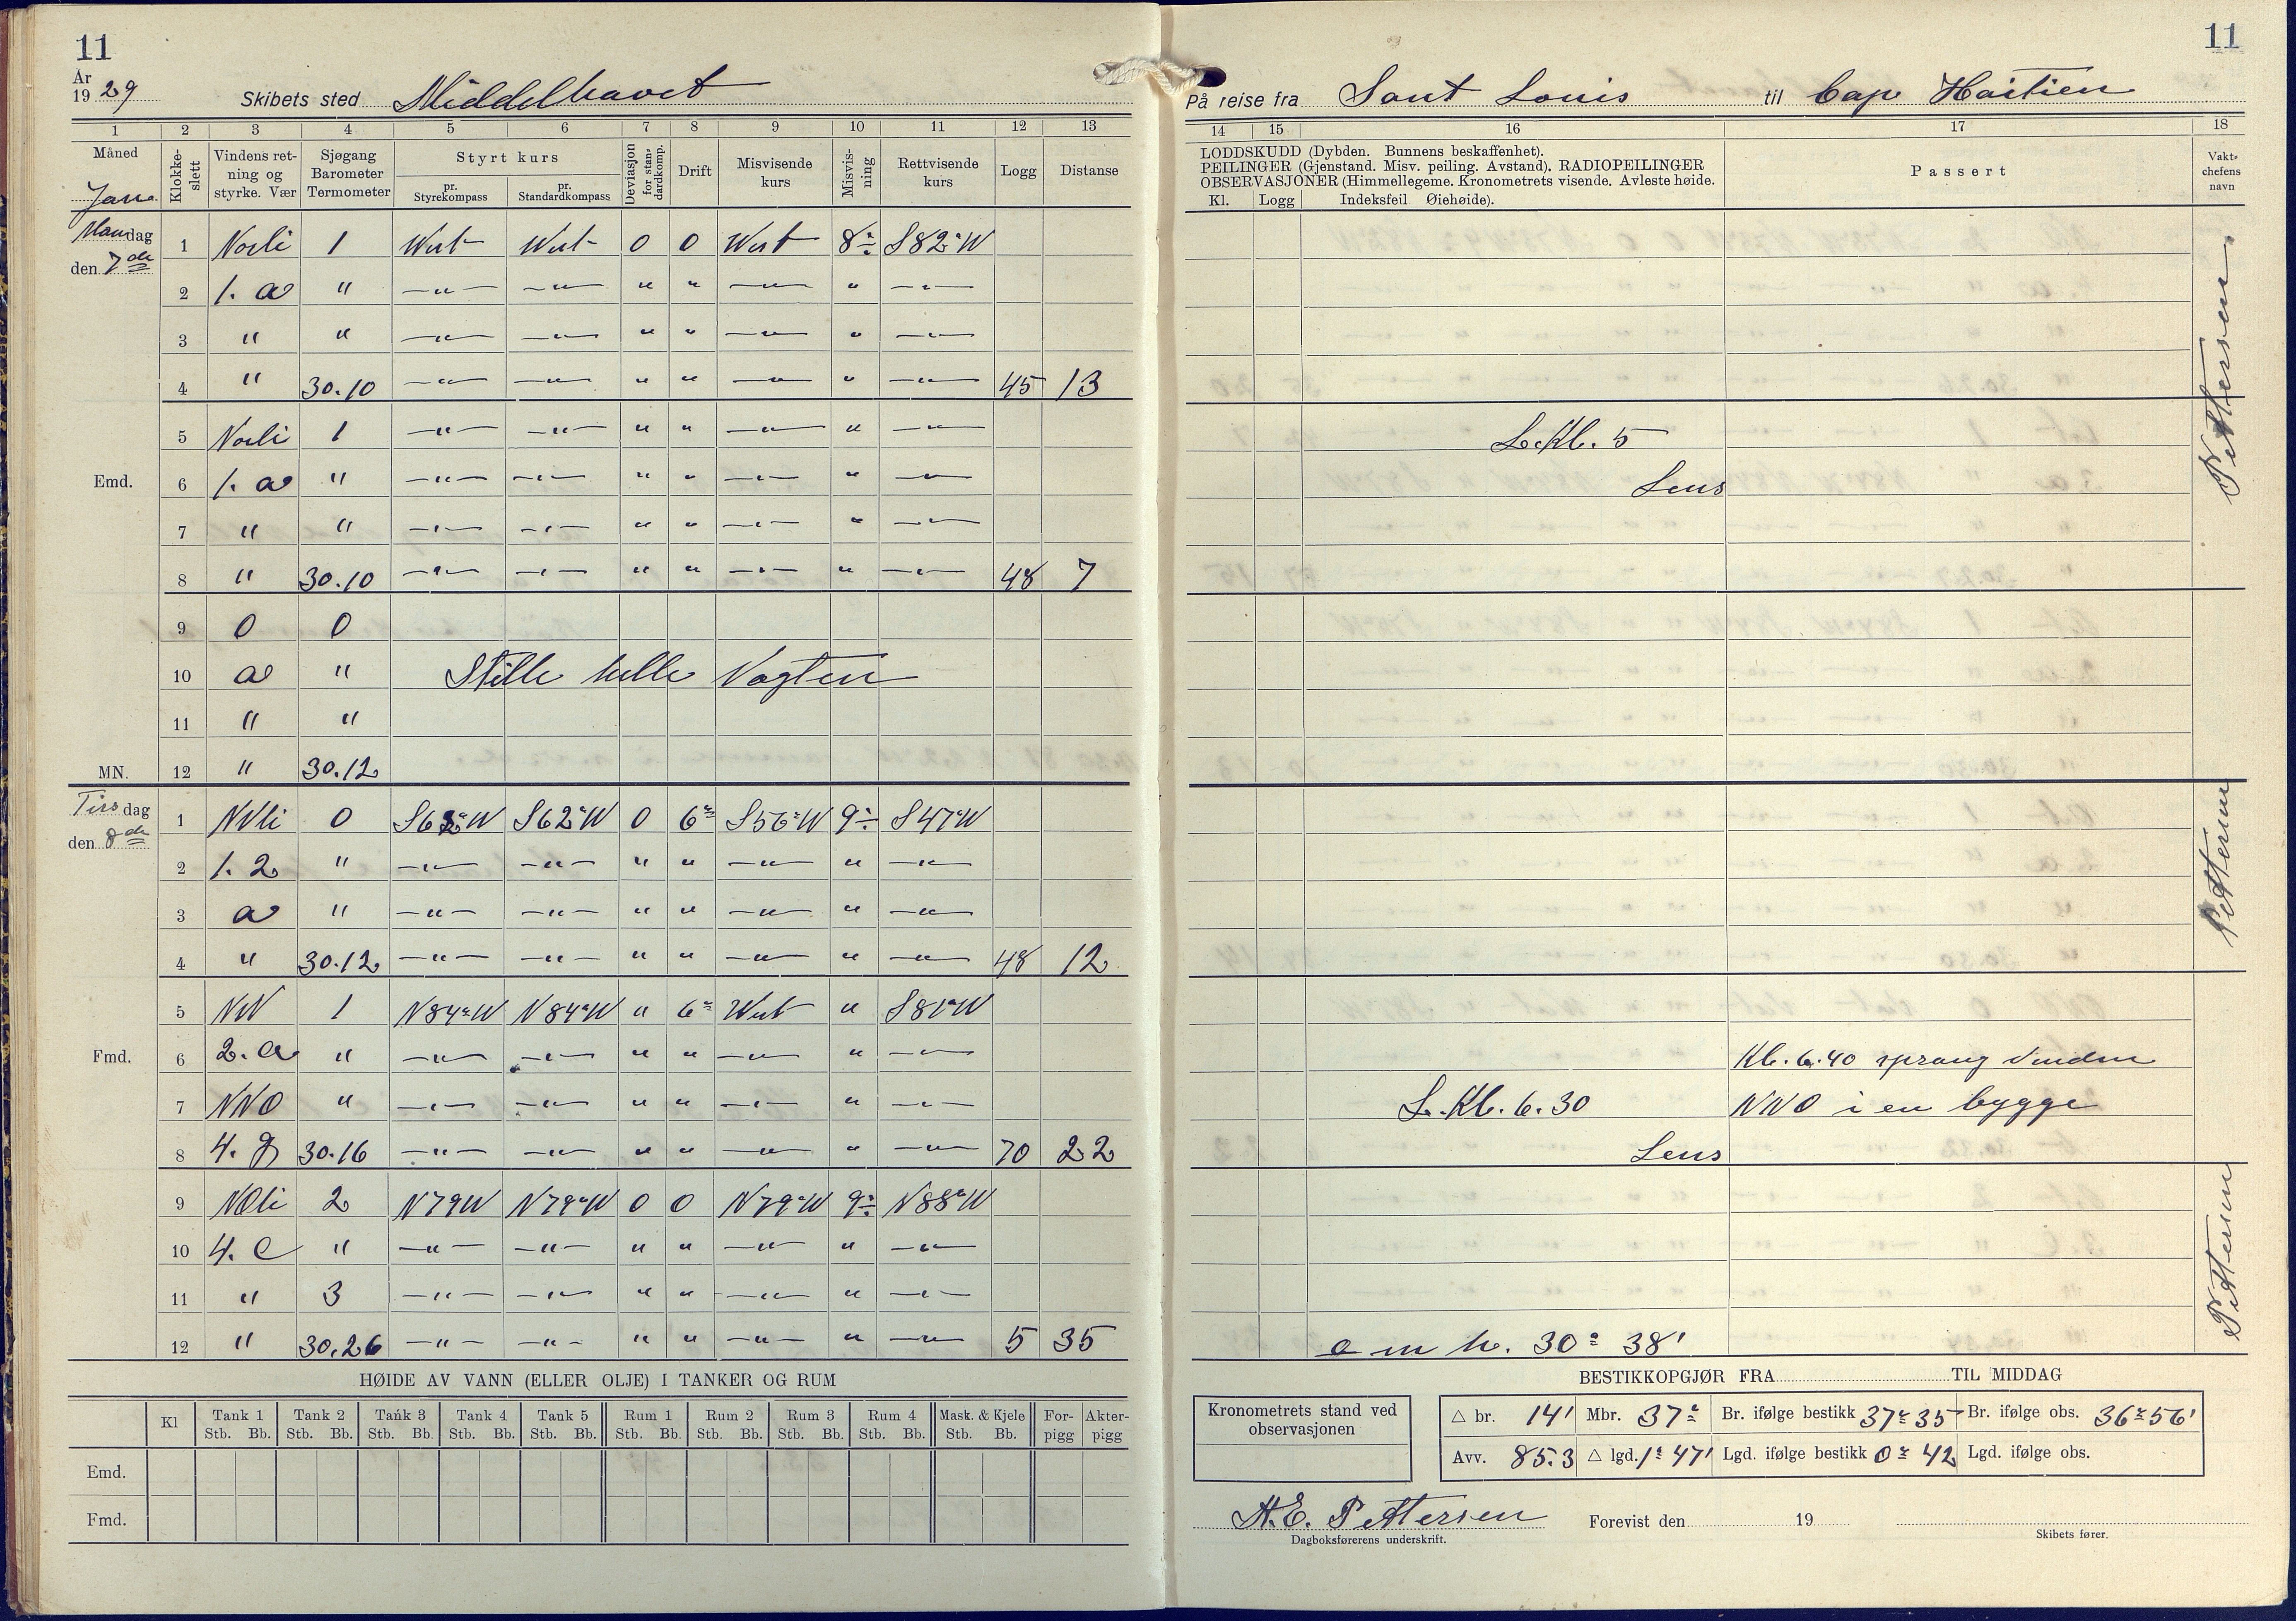 11
År
1929
Skibets sted Middelhavet
1 2 3 4 5 6 7 8 9 10 11 12 13
Måned
Janr.
Klokke-slett
Vindens ret-ning og styrke. Vær
Sjøgang Barometer Termometer
Styrt kurs
pr. Styrekompass
pr. Standardkompass
Deviasjon for stan-dardkomp.
Drift
Misvisende kurs
Misvis-ning
Rettvisende kurs
Logg
Distanse
Mandag
den 7de
1 1 West West 0 0 West 8° ÷ S82°W
2 1. a " —"— —"— " " —"— " —"—
3 " " —"— —"— " " —"— " —"—
4 " 30.10 —"— —"— " " —"— " —"— 45 13
5 1 —"— —"— " " —"— " —"—
Emd.
6 1. a " —"— —"— " " —"— " —"—
7 " " —"— —"— " " —"— " —"—
8 " 30.10 —"— —"— " " —"— " —"— 48 7
9 0 0
10 a " Stille hele Vagten
11 " "
MN. 12 " 30.12
Tirsdag
den 8de
1 0 S62°W S62°W 0 6° S56°W 9° ÷ S47°W
2 1. 2 " —"— —"— " " —"— " —"—
3 a " —"— —"— " " —"— " —"—
4 " 30.12 —"— —"— " " —"— " —"— 48 12
5 NW 1 N84°W N84°W " 6° West " S81°W
Fmd.
6 2. a " —"— —"— " " —"— " —"—
7 NNO " —"— —"— " " —"— " —"—
8 4. 30.16 —"— —"— " " —"— " —"— 70 22
9 NOli 2 N79W N79°W 0 0 N79°W 9° ÷ N88°W
10 4. c " —"— —"— " " —"— " —"—
11 " 3 —"— —"— " " —"— " —"—
12 " 30.26 —"— —"— " " —"— " —"— 5 35
HØIDE AV VANN (ELLER OLJE) I TANKER OG RUM
Kl Tank 1 Tank 2 Tank 3 Tank 4 Tank 5 Rum 1 Rum 2 Rum 3 Rum 4 Mask. & Kjele For-pigg Akter-pigg
Stb. Bb. Stb. Bb. Stb. Bb. Stb. Bb. Stb. Bb. Stb. Bb. Stb. Bb. Stb. Bb. Stb. Bb. Stb. Bb.
Emd.
Fmd.
11
På reise fra Sant Louis til Cap Haitien
14 15 16 17 18
LODDSKUDD (Dybden. Bunnens beskaffenhet).
PEILINGER (Gjenstand. Misv. peiling. Avstand). RADIOPEILINGER
OBSERVASJONER (Himmellegeme. Kronometrets visende. Avleste høide.
Kl. Logg Indeksfeil Øiehøide).
Passert
Vakt-chefens navn
Pettersen
L. Kl. 5
Lens
Pettersen
Kl. 6.40 sprang Vinden
L. Kl. 6.30 NNO i en bygge
Lens
Pettersen
30° 38'
BESTIKKOPGJØR FRA TIL MIDDAG
Kronometrets stand ved observasjonen
△ br. 14' Mbr. 37° Br. ifølge bestikk 37° 35' Br. ifølge obs. 36° 56'
Avv. 85.3 △ lgd. 1° 47' Lgd. ifølge bestikk 0° 42 Lgd. ifølge obs.
H.E. Pettersen
Dagboksførerens underskrift.
Forevist den 19
Skibets fører.